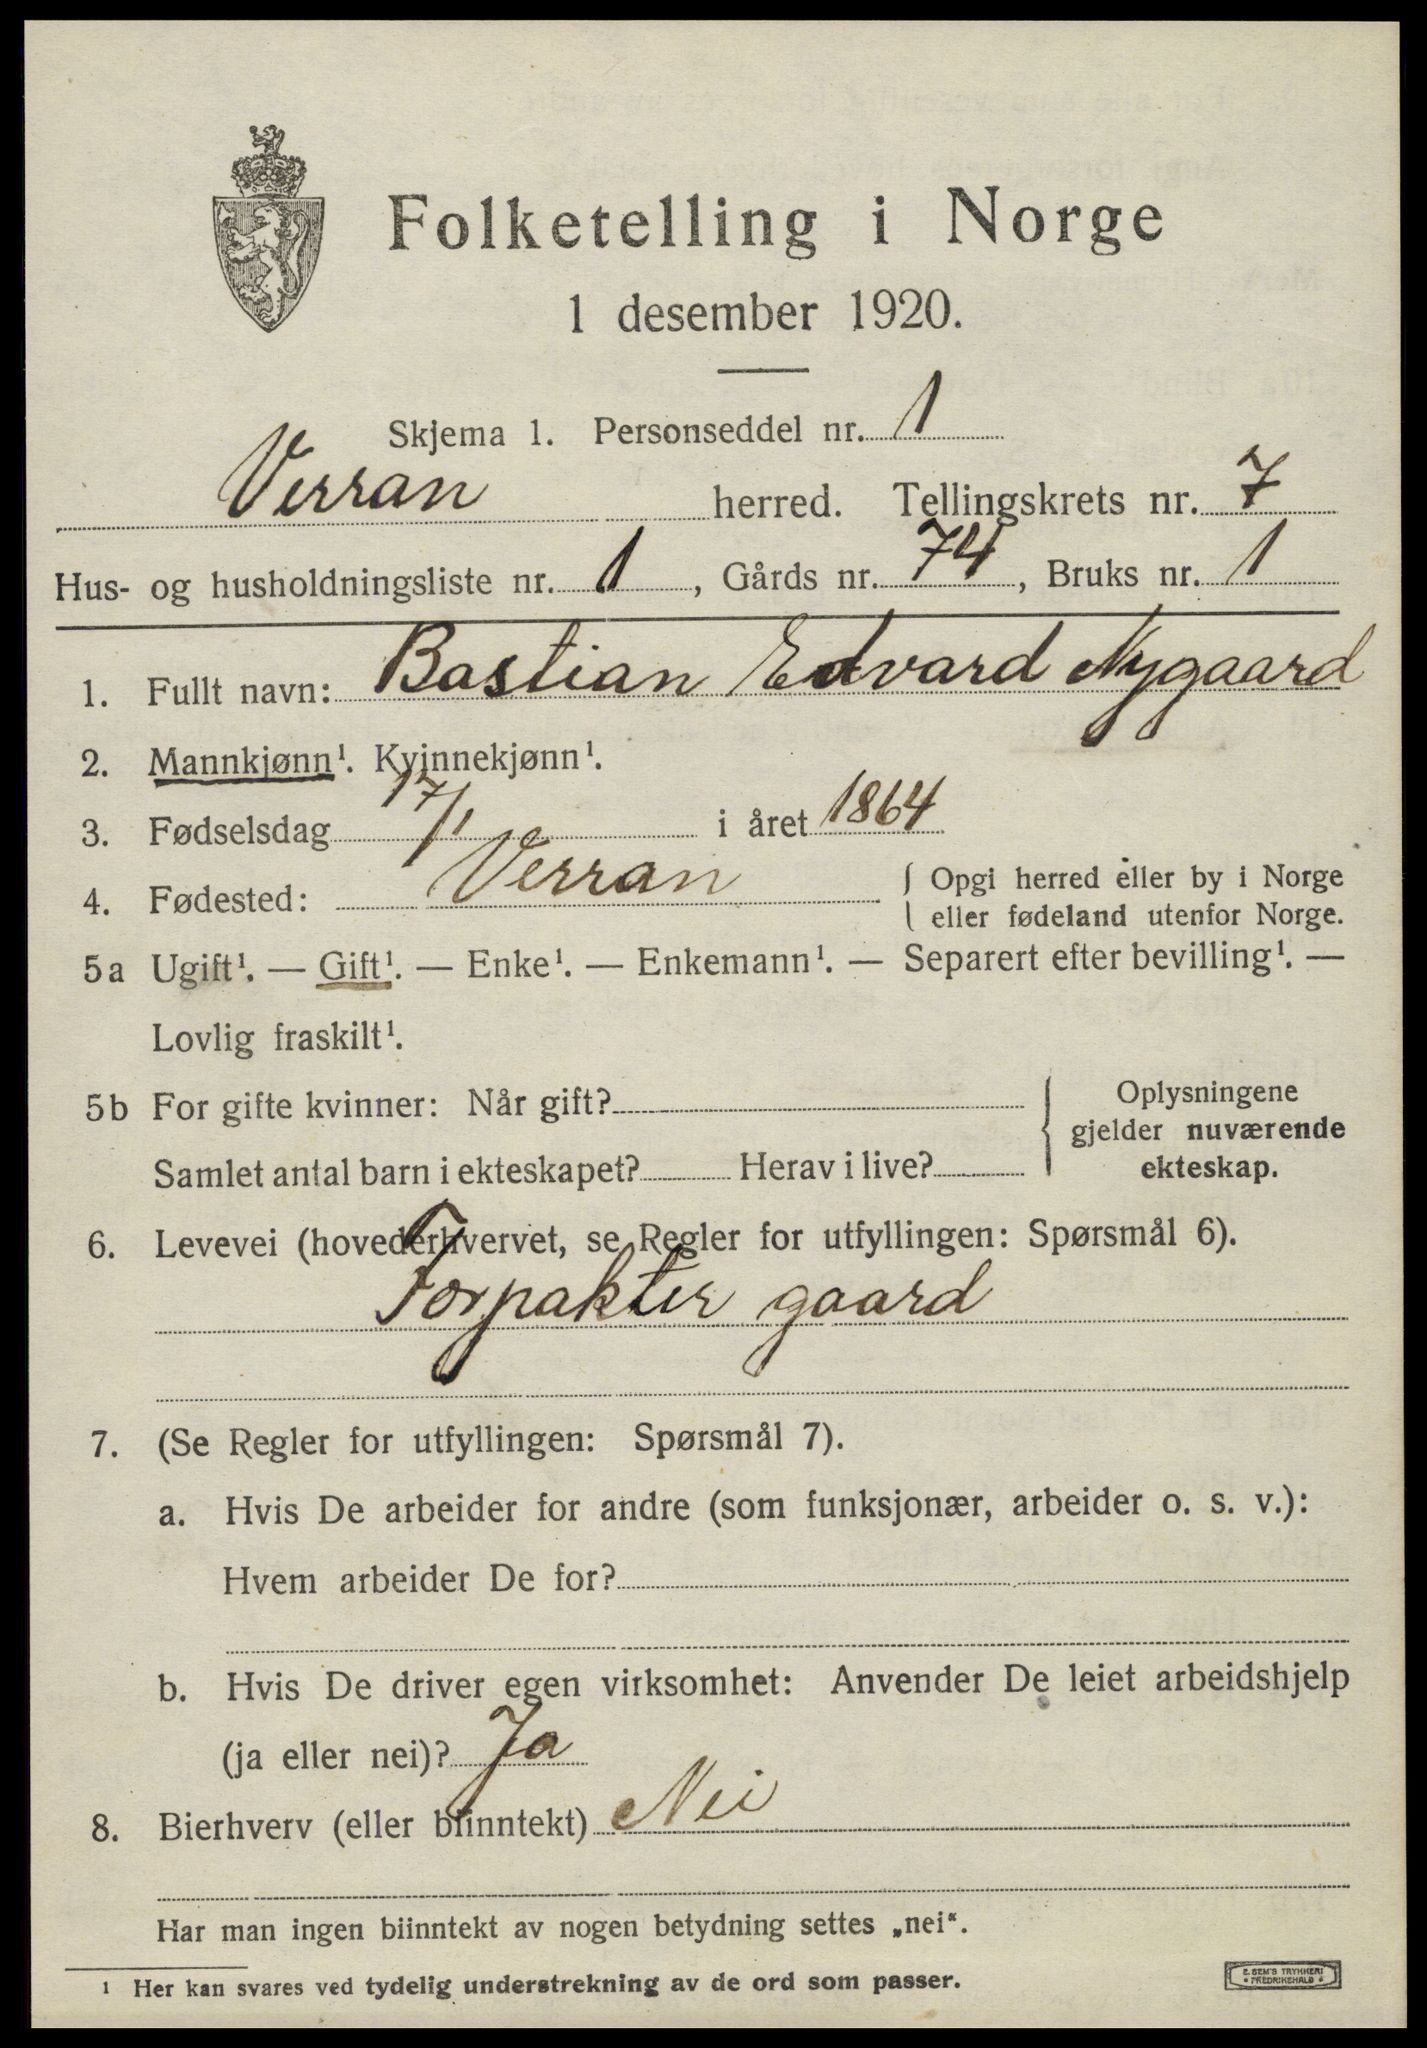 Folketelling i Norge
1 desember 1920.
Skjema 1. Personseddel nr. 1
Verran herred. Tellingskrets nr. 7
Hus- og husholdningsliste nr. 1, Gårds nr. 74, Bruks nr. 1
1. Fullt navn: Bastian Edvard Nygaard
2. Mannkjønn¹. Kvinnekjønn¹.
3. Fødselsdag 17/1 i året 1864
4. Fødested: Verran { Opgi herred eller by i Norge
eller fødeland utenfor Norge.
5a Ugift¹. — Gift¹. — Enke¹. — Enkemann¹. — Separert efter bevilling¹. —
Lovlig fraskilt¹.
5b For gifte kvinner: Når gift? { Oplysningene
gjelder nuværende
Samlet antal barn i ekteskapet? Herav i live? ekteskap.
6. Levevei (hovederhvervet, se Regler for utfyllingen: Spørsmål 6).
Forpakter gaard
7. (Se Regler for utfyllingen: Spørsmål 7).
a. Hvis De arbeider for andre (som funksjonær, arbeider o. s. v.):
Hvem arbeider De for?
b. Hvis De driver egen virksomhet: Anvender De leiet arbeidshjelp
(ja eller nei)? Ja
8. Bierhverv (eller biinntekt) Nei
Har man ingen biinntekt av nogen betydning settes „nei“.
¹ Her kan svares ved tydelig understrekning av de ord som passer.
E. SEM'S TRYKKERI
• FREDRIKSHALD •